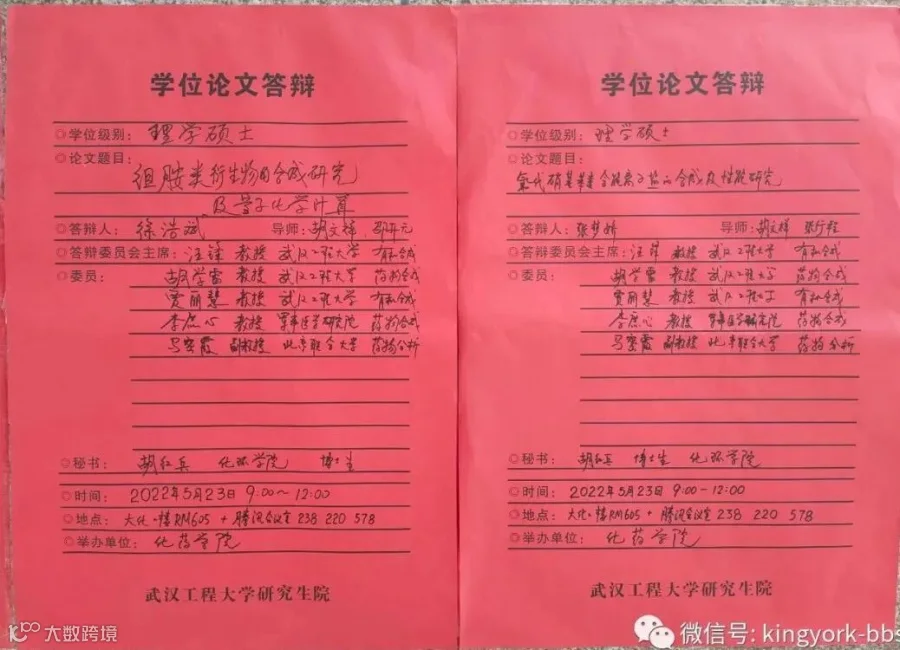 学位论文答辩
◎学位级别：理学硕士
◎论文题目：
组胺类衍生物的合成研究
及量子化学计算
◎答辩人：徐浩斌 导师：胡文祥 邵开元
◎答辩委员会主席：汪锋 教授 武汉工程大学 有机合成
◎委员：胡学雷 教授 武汉工程大学 药物合成
贾丽慧 教授 武汉工程大学 有机合成
李庶心 教授 军事医学研究院 药物合成
马密霞 副教授 北京联合大学 药物分析
◎秘书：胡红兵 化环学院 博士生
◎时间：2022年5月23日 9:00~12:00
◎地点：大化工楼RM605 + 腾讯会议室 238 220 578
◎举办单位：化药学院
武汉工程大学研究生院
学位论文答辩
◎学位级别：理学硕士
◎论文题目：
氮代硝基苯类含能离子盐的合成及性能研究
◎答辩人：张梦婷 导师：胡文祥 张行程
◎答辩委员会主席：汪锋 教授 武汉工程大学 有机合成
◎委员：胡学雷 教授 武汉工程大学 药物合成
贾丽慧 教授 武汉工程大学 有机合成
李庶心 教授 军事医学研究院 药物合成
马密霞 副教授 北京联合大学 药物分析
◎秘书：胡红兵 博士生 化环学院
◎时间：2022年5月23日 9:00-12:00
◎地点：大化工楼RM605 + 腾讯会议室 238 220 578
◎举办单位：化药学院
武汉工程大学研究生院
大数跨境
微信号: kingyork-bbs